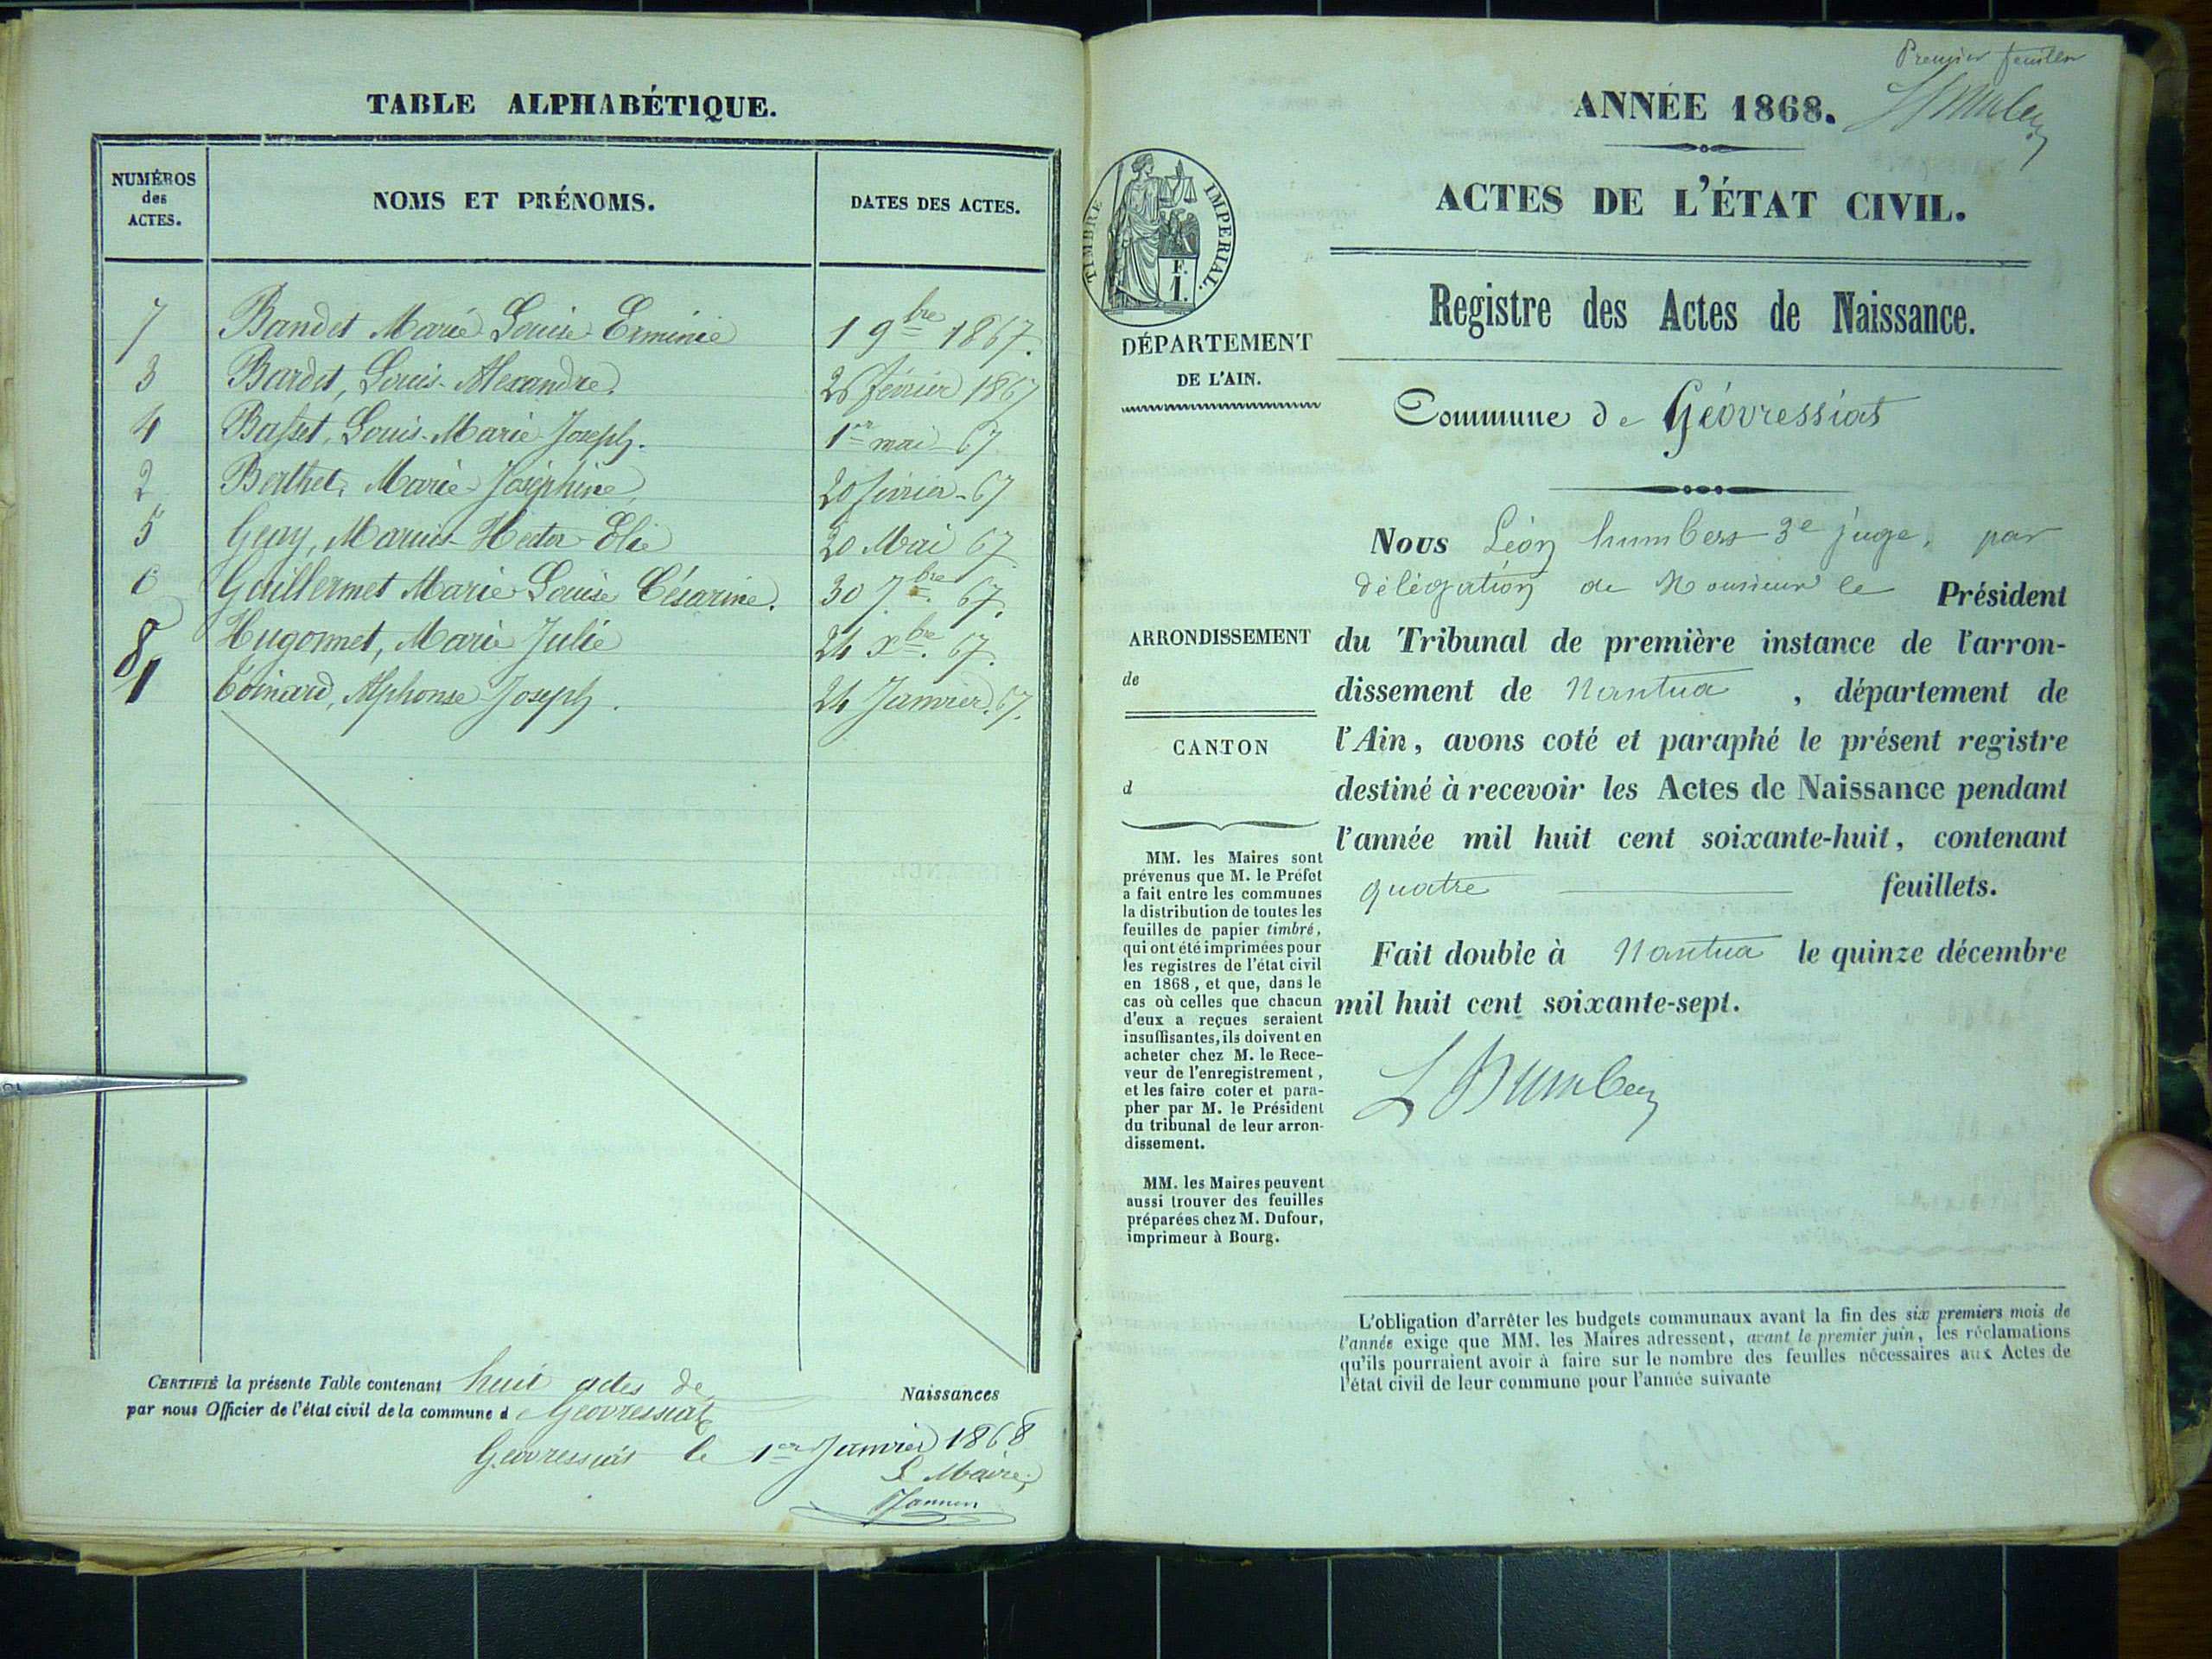 TABLE ALPHABÉTIQUE.
NUMÉROS des ACTES.
NOMS ET PRÉNOMS.
DATES DES ACTES.
7 Bandet Marie Louise Erminie 1 9bre 1867.
3 Bardet, Louis-Alexandre. 26 février 1867
4 Basset, Louis-Marie-Joseph. 1er mai-67.
2 Berthet, Marie-Joséphine, 20 février-67
5 Geay, Marius-Hector-Elie 20 Mai 67
6 Guillermet Marie Louise Césarine. 30 7bre. 67.
8 Hugonnet, Marie Julie 24 Xbre. 67.
1 Toinard, Alphonse Joseph. 24 Janvier. 67.
CERTIFIÉ la présente Table contenant huit actes de Naissances
par nous Officier de l'état civil de la commune de Géovressiat
Géovressiat le 1er Janvier 1868
Le Maire,
Premier feuillet
ANNÉE 1868.
ACTES DE L'ÉTAT CIVIL.
TIMBRE IMPERIAL.
F.
1.
Registre des Actes de Naissance.
DÉPARTEMENT
DE L'AIN.
Commune de Géovressiat
ARRONDISSEMENT
de
CANTON
d
MM. les Maires sont
prévenus que M. le Préfet
a fait entre les communes
la distribution de toutes les
feuilles de papier timbré,
qui ont été imprimées pour
les registres de l'état civil
en 1868, et que, dans le
cas où celles que chacun
d'eux a reçues seraient
insuffisantes, ils doivent en
acheter chez M. le Rece-
veur de l'enregistrement,
et les faire coter et para-
pher par M. le Président
du tribunal de leur arron-
dissement.
MM. les Maires peuvent
aussi trouver des feuilles
préparées chez M. Dufour,
imprimeur à Bourg.
Nous Léon humbert 3e juge, par
délégation de Monsieur le Président
du Tribunal de première instance de l'arron-
dissement de Nantua, département de
l'Ain, avons coté et paraphé le présent registre
destiné à recevoir les Actes de Naissance pendant
l'année mil huit cent soixante-huit, contenant
quatre feuillets.
Fait double à Nantua le quinze décembre
mil huit cent soixante-sept.
L Humbert
L'obligation d'arrêter les budgets communaux avant la fin des six premiers mois de
l'année exige que MM. les Maires adressent, avant le premier juin, les réclamations
qu'ils pourraient avoir à faire sur le nombre des feuilles nécessaires aux Actes de
l'état civil de leur commune pour l'année suivante